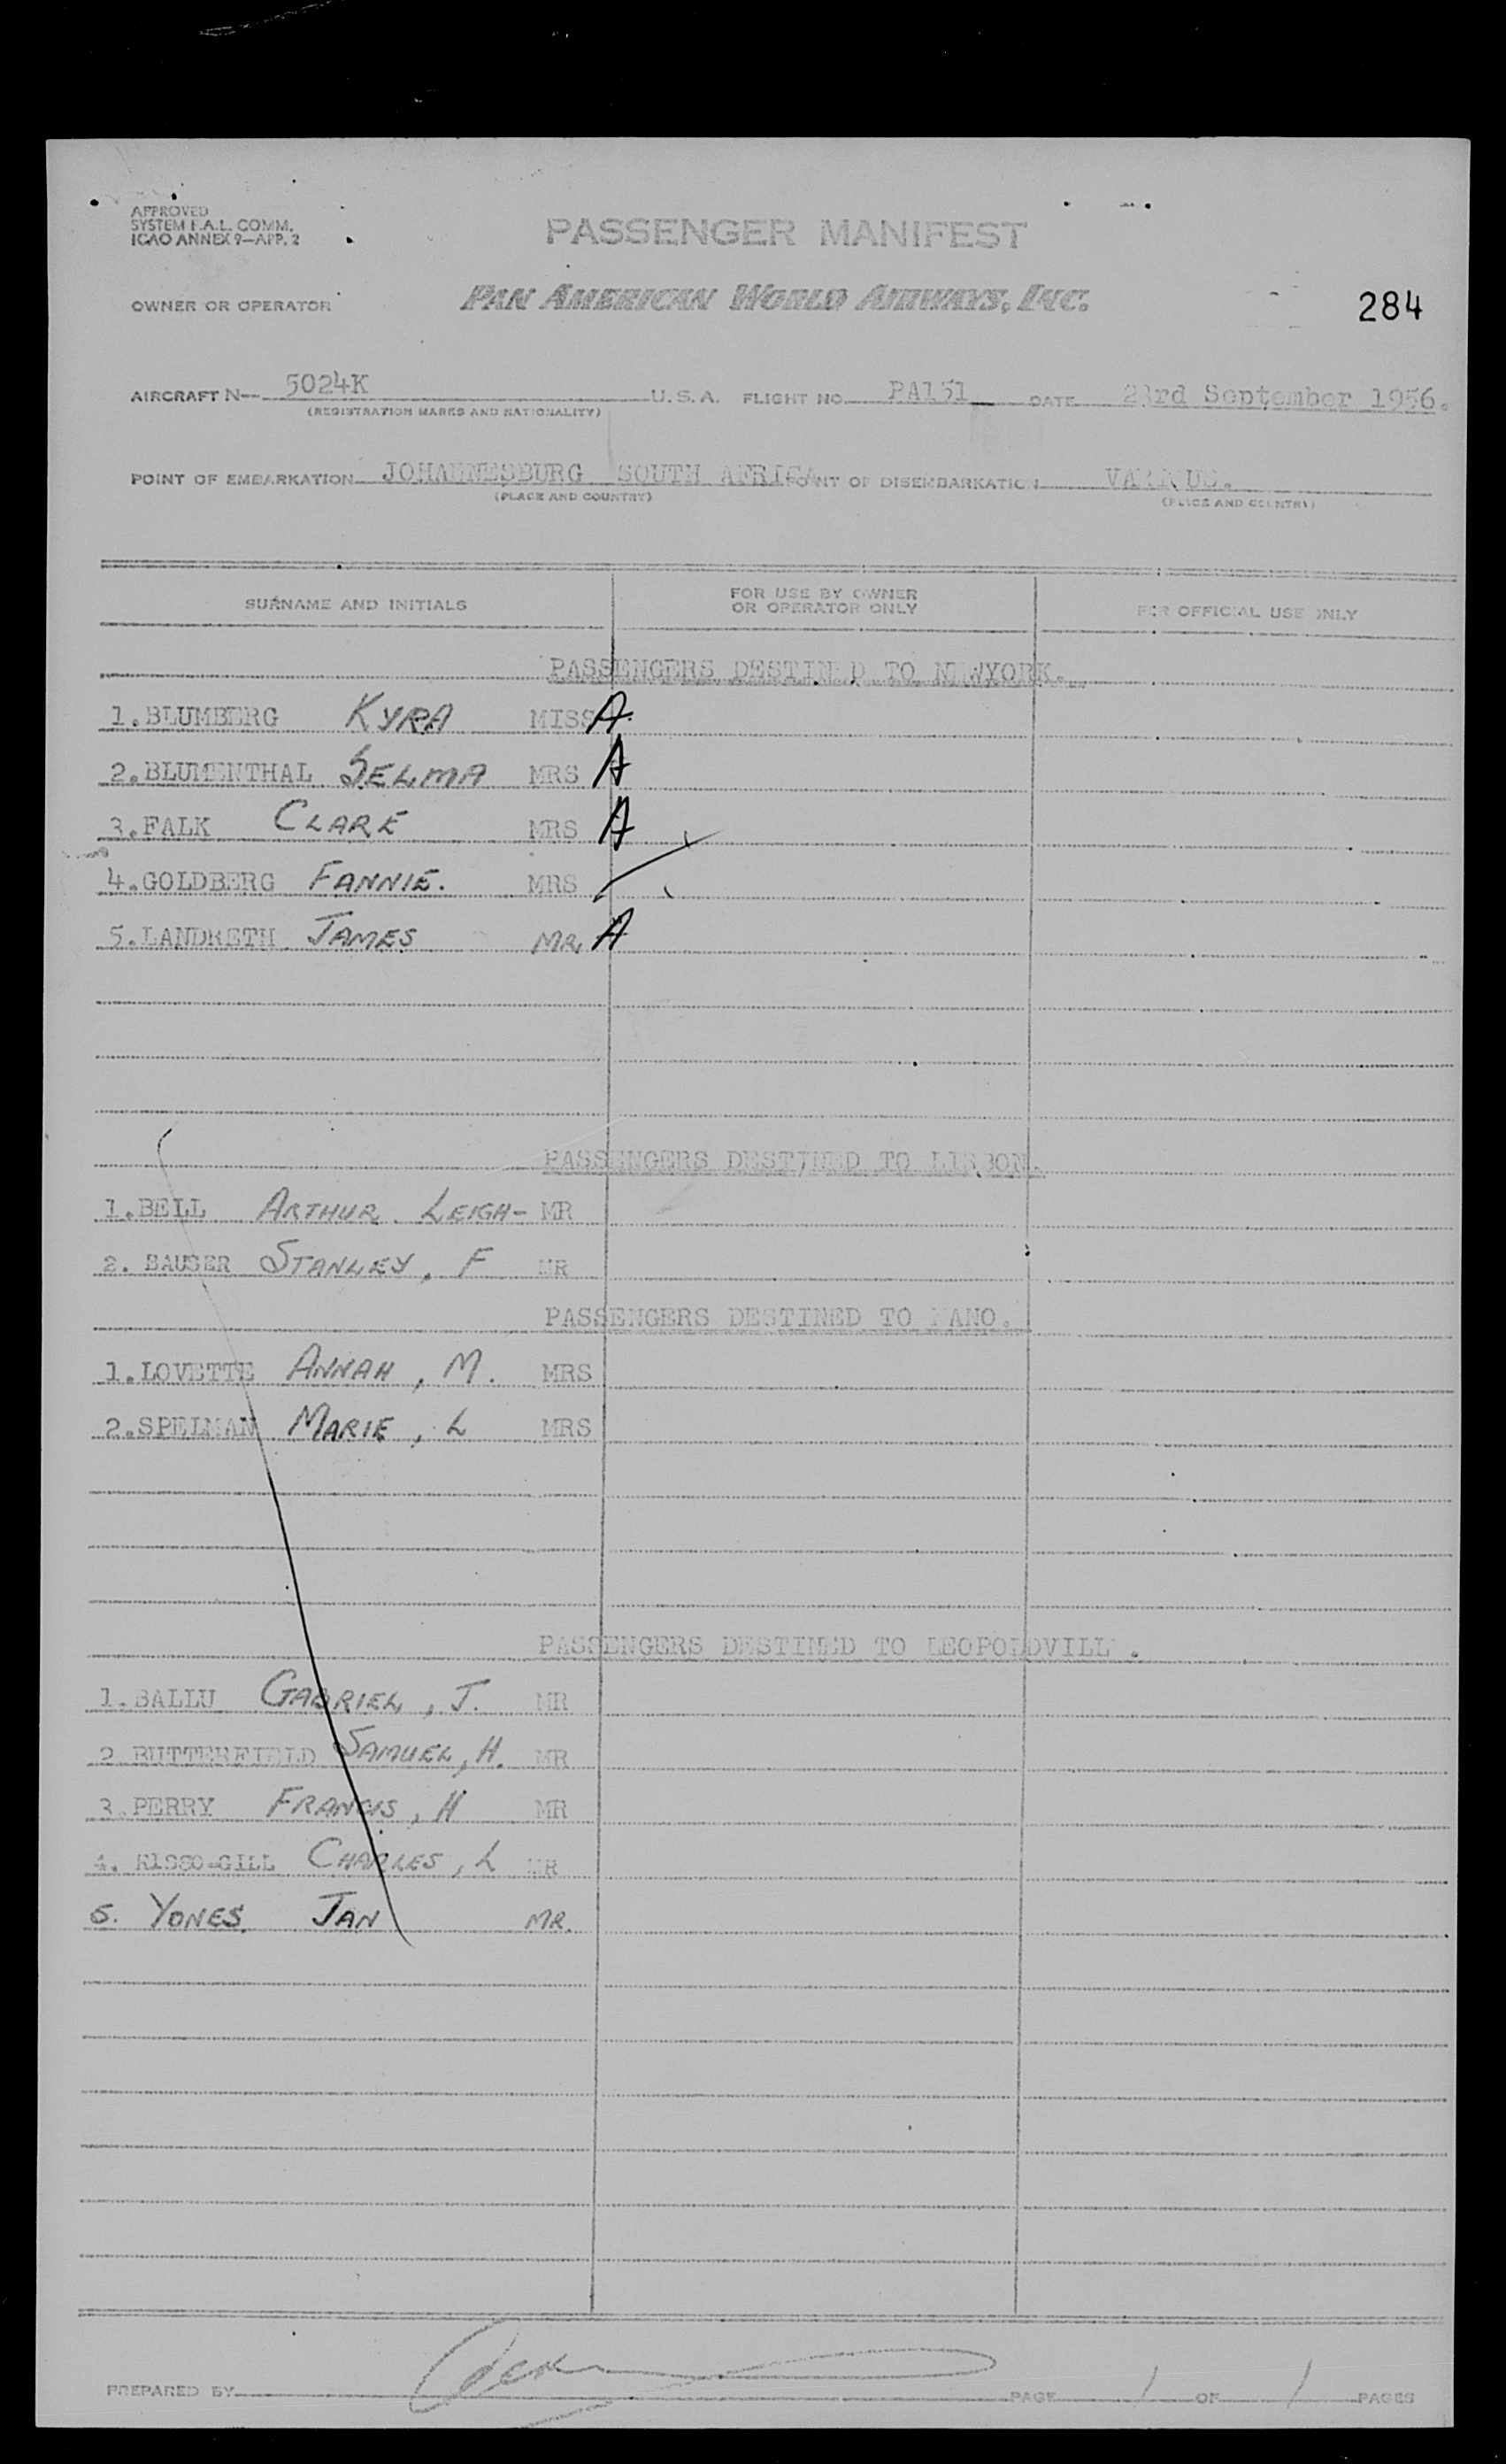 APPROVED
SYSTEM F.A.L. COMM.
ICAO ANNEX 9—APP. 2
PASSENGER MANIFEST
OWNER OR OPERATOR
PAN AMERICAN WORLD AIRWAYS, INC.
284
AIRCRAFT N— 5024K U. S. A. FLIGHT NO. PA151 DATE 23rd September 1956.
(REGISTRATION MARKS AND NATIONALITY)
POINT OF EMBARKATION JOHANNESBURG SOUTH AFRICA POINT OF DISEMBARKATION VARIOUS.
(PLACE AND COUNTRY) (PLACE AND COUNTRY)
SURNAME AND INITIALS
FOR USE BY OWNER
OR OPERATOR ONLY
FOR OFFICIAL USE ONLY
PASSENGERS DESTINED TO NEWYORK.
1.BLUMBERG KYRA MISS A
2.BLUMENTHAL SELMA MRS A
3.FALK CLARE MRS A
4.GOLDBERG FANNIE. MRS
5.LANDRETH JAMES MR. A
PASSENGERS DESTINED TO LISBON.
1.BELL ARTHUR LEIGH- MR
2. BAUSER STANLEY, F MR
PASSENGERS DESTINED TO KANO.
1.LOVETTE ANNAH, M. MRS
2.SPELMAN MARIE, L MRS
PASSENGERS DESTINED TO LEOPOLDVILLE.
1.BALLU GABRIEL, J. MR
2.BUTTERFIELD SAMUEL, H. MR
3.PERRY FRANCIS, H MR
4. RISSO-GILL CHARLES, L MR
5. YONES JAN MR.
PREPARED BY PAGE 1 OF 1 PAGES